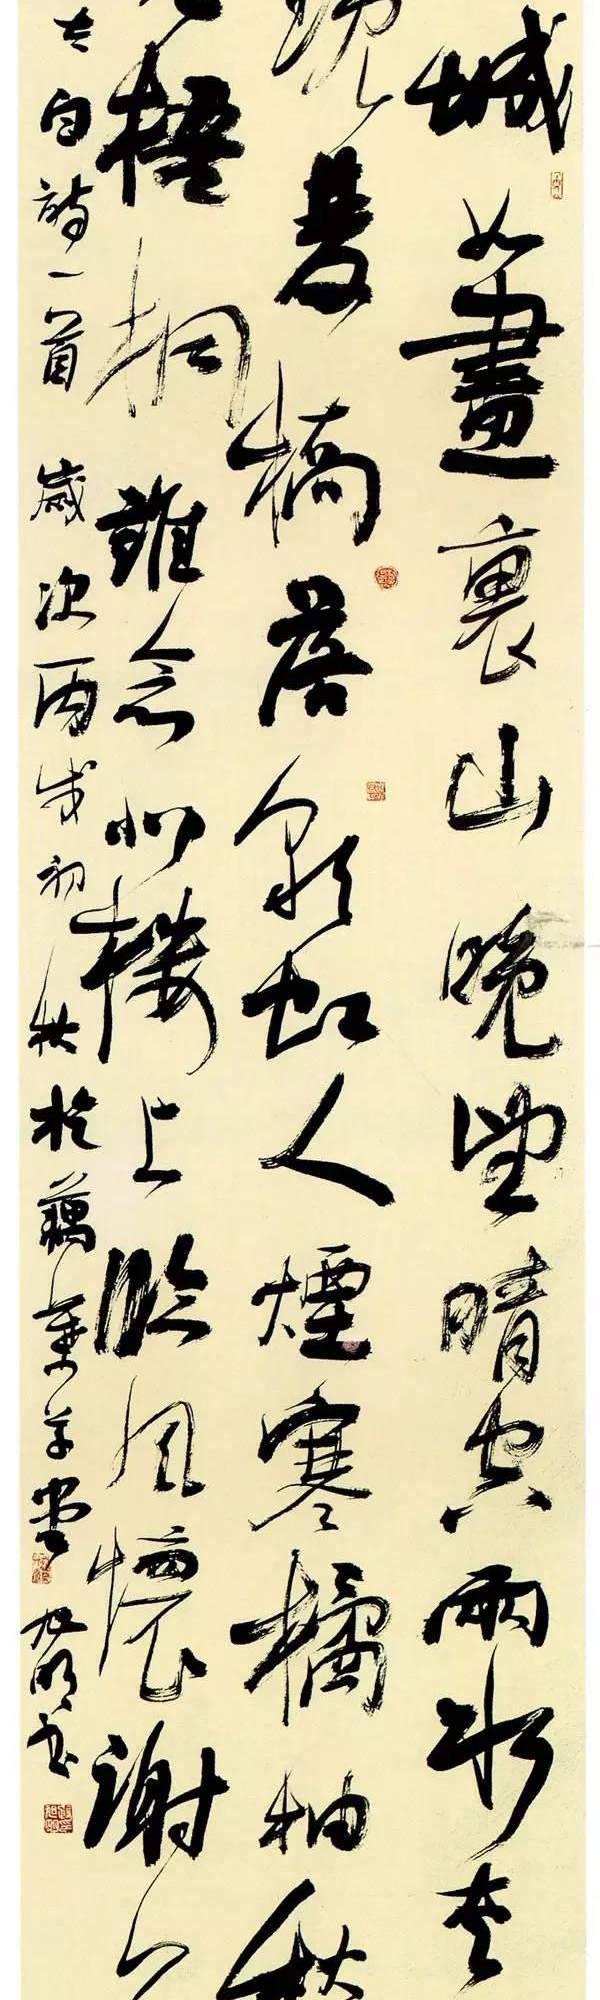 城如畫裏山晚望晴空兩水夾
雙橋落彩虹人煙寒橘柚秋
梧桐誰念北樓上臨風懷謝公
太白詩一首 歲次丙戌初秋於藕葉草堂 書